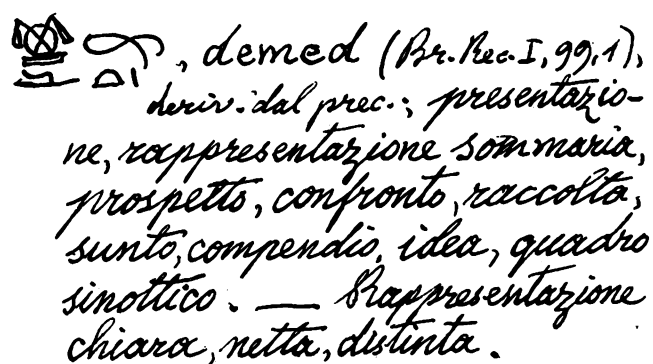 , demed (Br. Rec. I, 99, 1),
deriv. dal prec.; presentazio-
ne, rappresentazione sommaria,
prospetto, confronto, raccolta,
sunto, compendio, idea, quadro
sinottico. — Rappresentazione
chiara, netta, distinta.